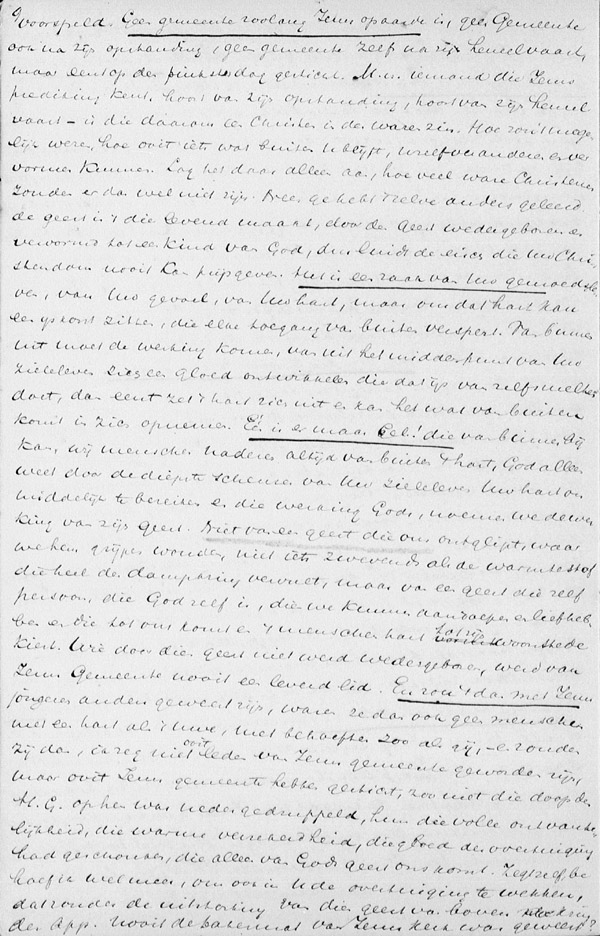 voorspeld. Geen gemeente zoolang Jezus op aarde is, geen Gemeente
ook na zijn opstanding, geen gemeente zelf na zijn hemelvaart,
maar eerst op den pinksterdag gesticht. M. w. iemand die Jezus
prediking kent, hoort van zijn opstanding, hoort van zijn hemel
vaart – is die daarom een Christen in den waren zin. Hoe zou 't moge
lijk wezen, hoe ooit iets wat buiten U blijft, U zelf veranderen en ver
vormen kunnen. Lag het daar alleen aan, hoe veel ware Christenen
zouden er dan wel niet zijn. Neen gij hebt 't zelve anders geleerd
de geest is 't die levend maakt, door den Geest wedergeboren en
vervormd tot een kind van God, dus luidt de eisch die Uw Chri-
stendom nooit kan prijsgeven. Het is een zaak van Uw gemoedsle
ven, van Uw gevoel, van Uw hart, maar om dat hart kan
een ijskorst zitten, die elke toegang van buiten verspert. Van binnen
uit moet de werking komen, van uit het middenpunt van Uw
zieleleven zich een gloed ontwikkelen die dat ijs van zelf smelten
doet, dan eerst zet 't hart zich uit en kan het wat van buiten
komt in zich opnemen. En er is maar Eén! die van binnen bij
kan, wij menschen naderen altijd van buiten 't hart, God alleen
weet door de diepste schemer van Uw zieleleven Uw hart on
middelijk te bereiken en die werking Gods, noemen we de wer
king van zijn geest. Niet van een geest die ons ontglipt, waar
we hem grijpen wouden, niet iets zwevends als de warmtestof
die heel de dampkring vervult, maar van een geest die zelf
persoon, die God zelf is, die we kunnen aanroepen en liefheb
ben en die tot ons komt en 't menschen hart tot zijn woonstede
kiest. Wie door die geest niet werd wedergeboren, werd van
Jezus Gemeente nooit een levend lid. En zou 't dan met Jezus
jongeren anders geweest zijn, waren ze dan ook geen menschen
met een hart als 't Uwe, met behoeften zoo als gij, – en zouden
zij dan, ik zeg niet ooit leden van Jezus gemeente geworden zijn,
maar ooit Jezus gemeente hebben gesticht, zoo niet die doop des
H. G. op hen was nedergedruppeld, hun die volle ontvanke
lijkheid, die warme verzekerdheid, die gloed der overtuiging
had geschonken, die alleen van Gods geest ons komt. Zegt zelf be
hoef ik wel meer, om ook in U de overtuiging te wekken,
dat zonder de uitstorting van die geest van boven kring
der App. nooit de bakermat van Jezus kerk was geweest?